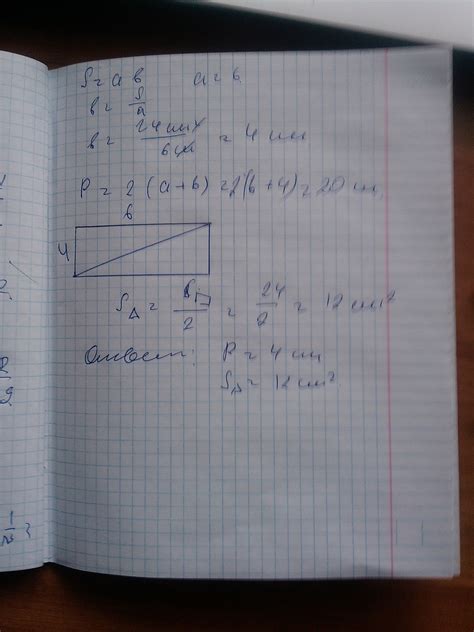 S = a b a = 6
b = S/a
b = 24 см²/6 см = 4 см
P = 2 (a + b) = 2(6 + 4) = 20 см
6
4
S△ = S▭/2 = 24/2 = 12 см²
Ответ: P = 4 см
S△ = 12 см²